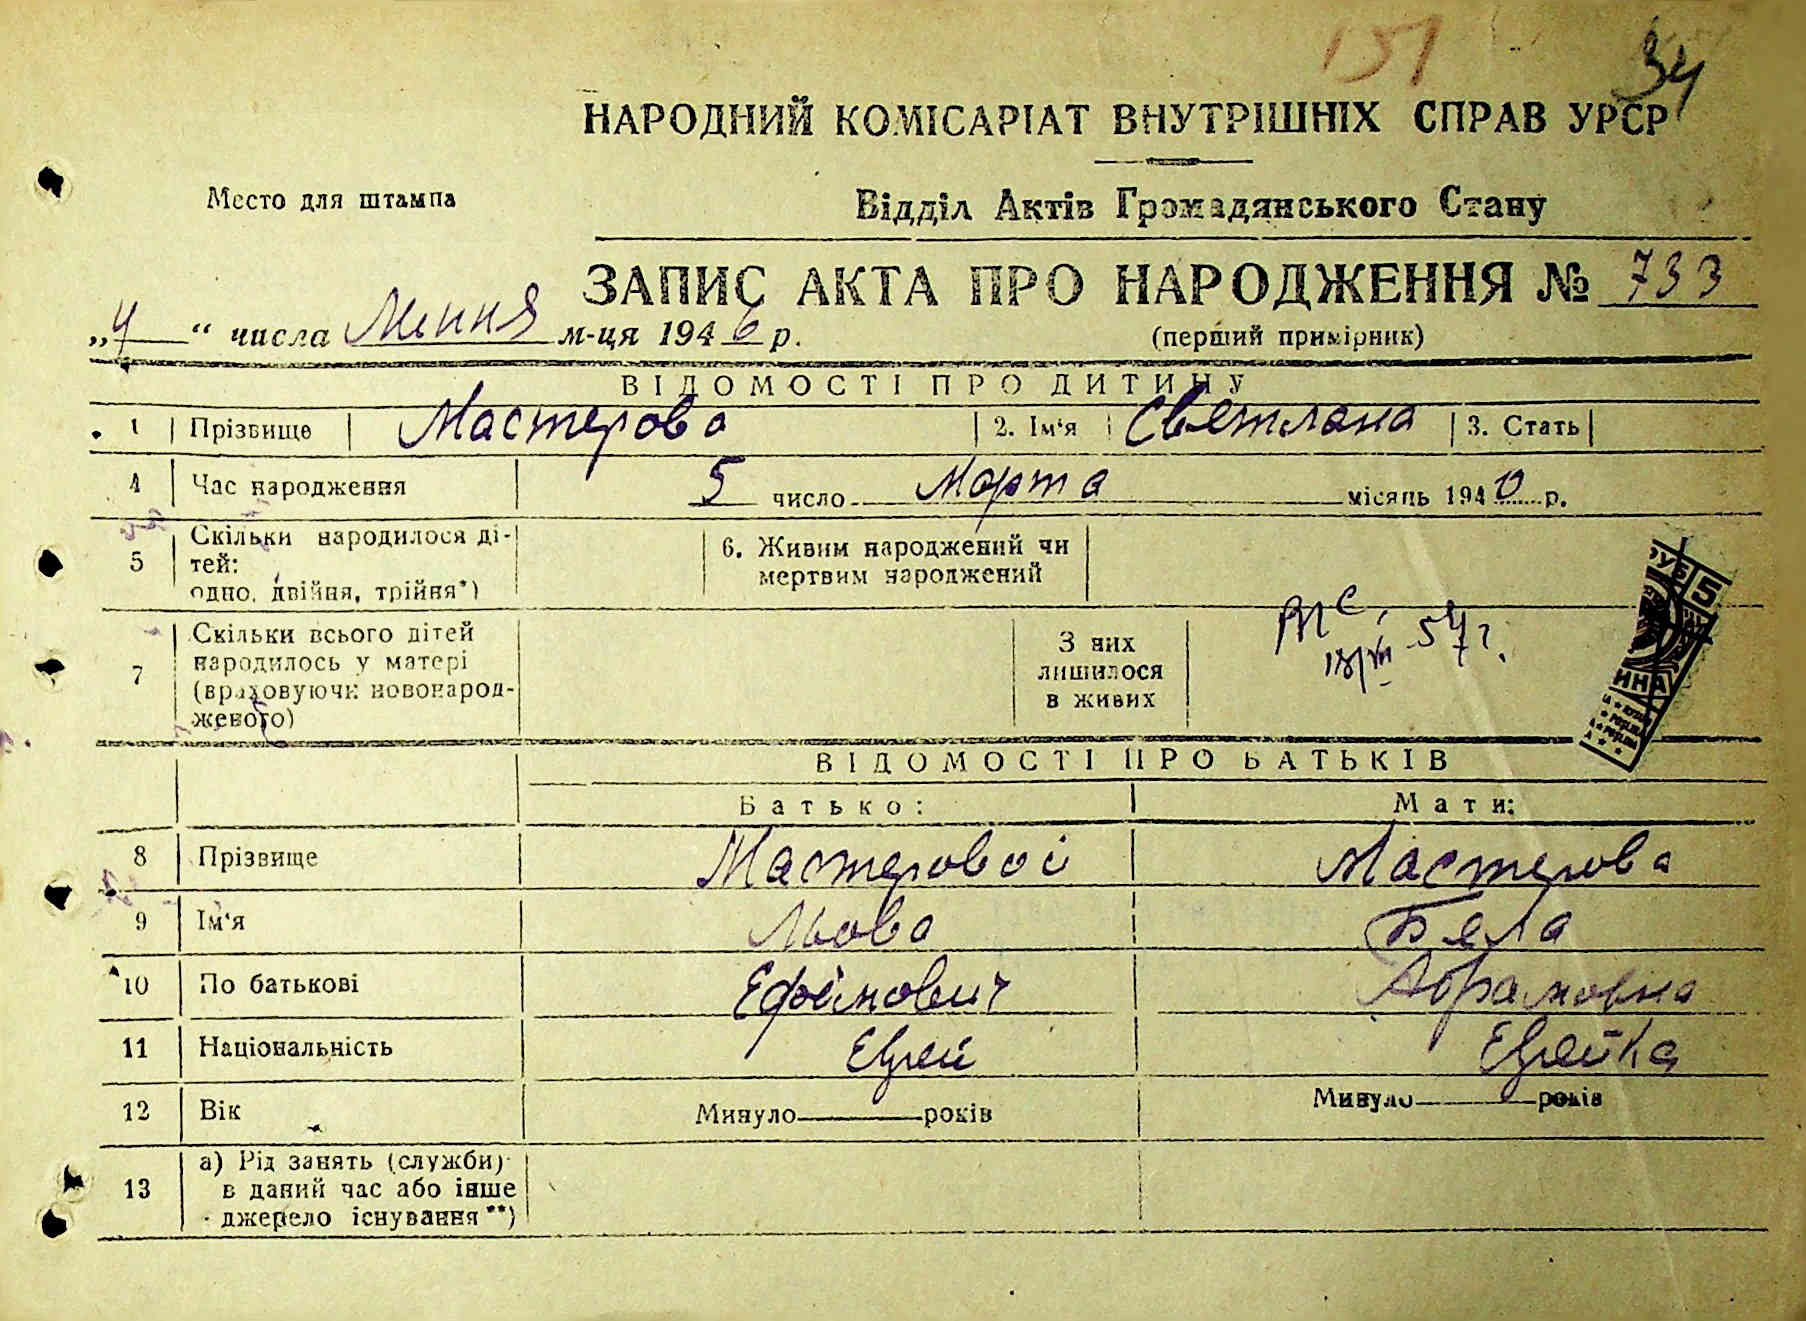 151
34
НАРОДНИЙ КОМІСАРІАТ ВНУТРІШНІХ СПРАВ УРСР
Место для штампа
Відділ Актів Громадянського Стану
ЗАПИС АКТА ПРО НАРОДЖЕННЯ № 733
„4“ числа Июння м-ця 1946 р.
(перший примірник)
ВІДОМОСТІ ПРО ДИТИНУ
1 Прізвище Мастерова 2. Ім‘я Светлана 3. Стать
4 Час народження 5 число Марта місяць 1940 р.
5 Скільки народилося ді-
тей:
одно, двійня, трійня*)
6. Живим народжений чи
мертвим народжений
7 Скільки всього дітей
народилось у матері
(враховуючи новонарод-
женого)
З них
лишилося
в живих
18/VII-54 г.
5
ВІДОМОСТІ ПРО БАТЬКІВ
Батько: Мати:
8 Прізвище Мастеровой Мастерова
9 Ім‘я Лёва Бэла
10 По батькові Ефимович Абрамовна
11 Національність Еврей Еврейка
12 Вік Минуло років Минуло років
13 а) Рід занять (служби)
в даний час або інше
джерело існування**)